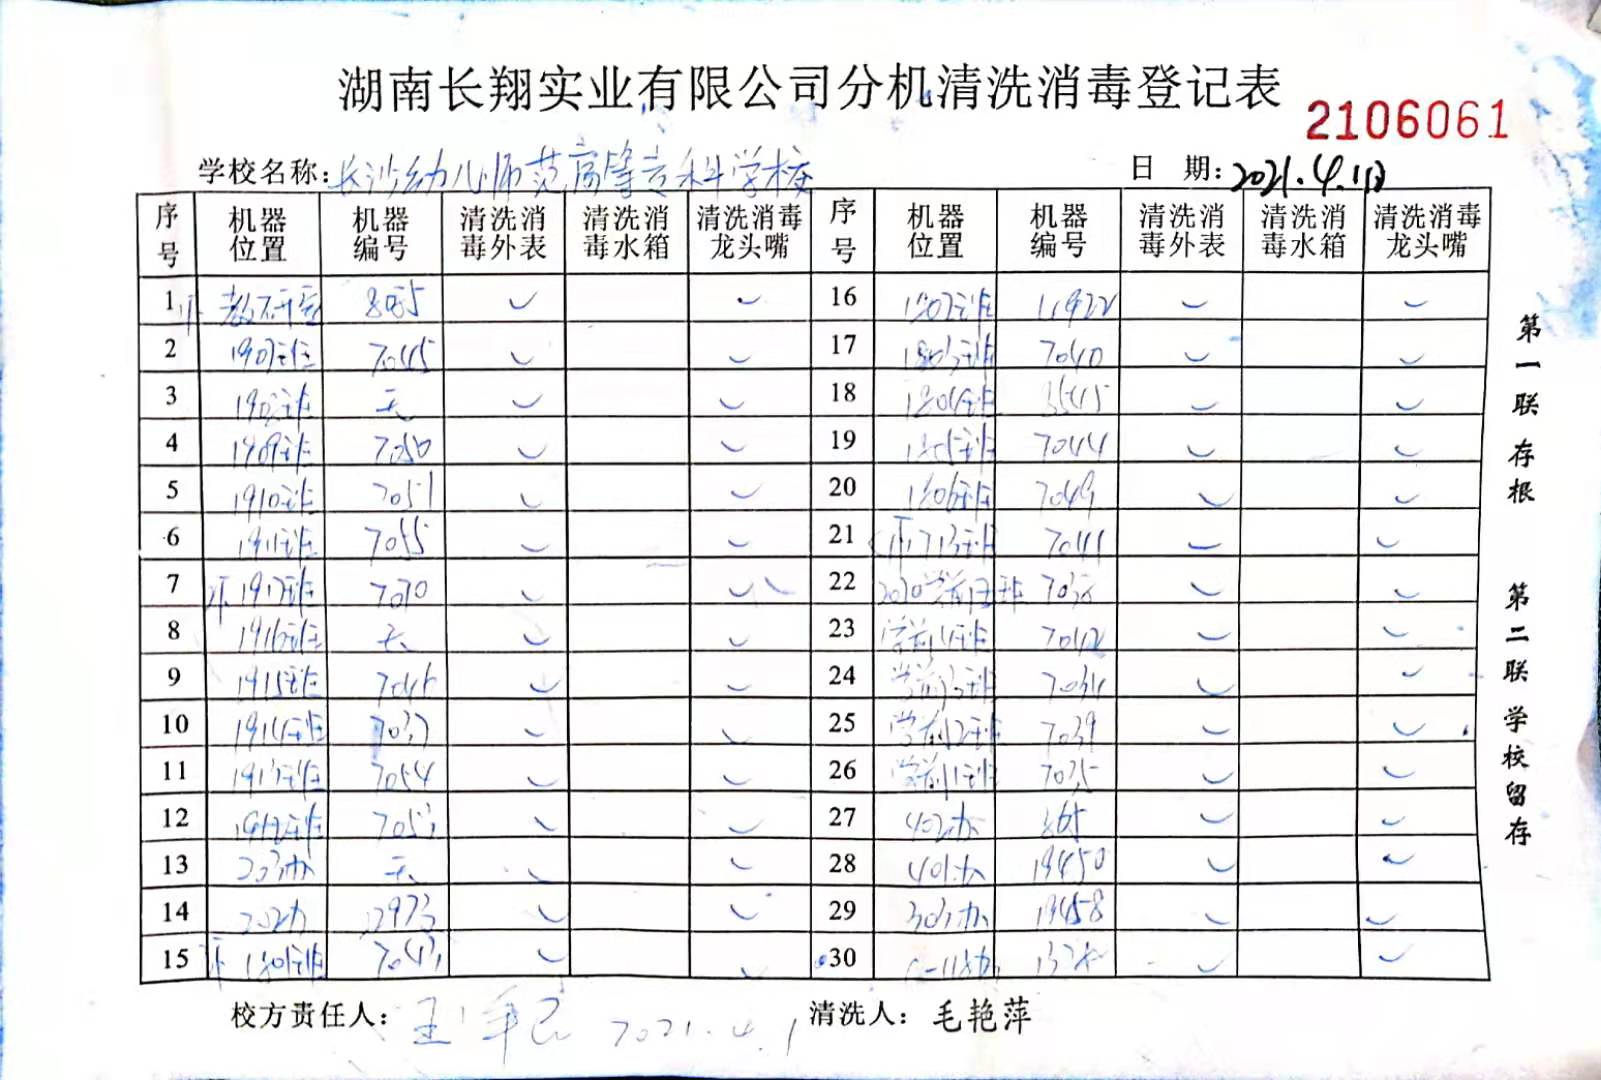 湖南长翔实业有限公司分机清洗消毒登记表
2106061
学校名称:长沙幼儿师范高等专科学校 日 期:2021.4.1日
序号 机器位置 机器编号 清洗消毒外表 清洗消毒水箱 清洗消毒龙头嘴 序号 机器位置 机器编号 清洗消毒外表 清洗消毒水箱 清洗消毒龙头嘴
1 教研室 ✓ ✓ 16 1802班 11922 ✓ ✓
2 1907班 7045 ✓ ✓ 17 1803班 7040 ✓ ✓
3 无 ✓ ✓ 18 1804班 ✓ ✓
4 1909班 7050 ✓ ✓ 19 1805班 7044 ✓ ✓
5 1910班 7051 ✓ ✓ 20 1806班 7049 ✓ ✓
6 1911班 7055 ✓ ✓ 21 ✓ ✓
7 ✓ ✓ 22 ✓ ✓
8 1916班 无 ✓ ✓ 23 学前4班 7042 ✓ ✓
9 1915班 ✓ ✓ 24 学前3班 ✓ ✓
10 1914班 7037 ✓ ✓ 25 学前2班 7039 ✓ ✓
11 1913班 7054 ✓ ✓ 26 学前1班 7035 ✓ ✓
12 1912班 7053 ✓ ✓ 27 402办 ✓ ✓
13 203办 无 ✓ ✓ 28 401办 19450 ✓ ✓
14 202办 ✓ ✓ 29 303办 19458 ✓ ✓
15 1801班 7043 ✓ ✓ 30 ✓ ✓
校方责任人: 2021.4.1 清洗人:毛艳萍
第一联存根 第二联学校留存